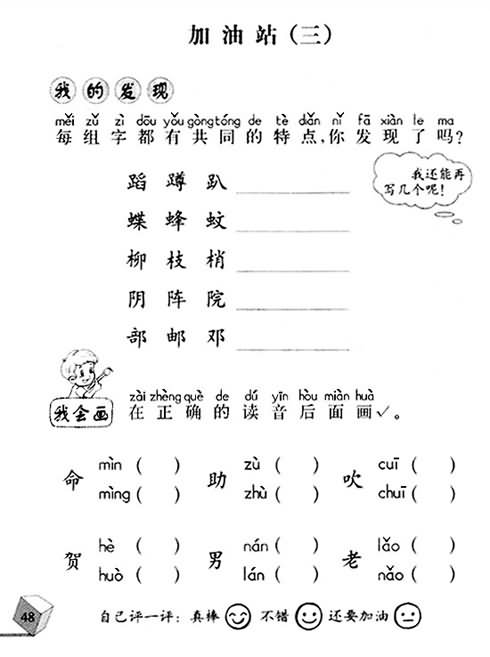 加油站(三)
我的发现
měi zǔ zì dōu yǒu gòng tóng de tè diǎn nǐ fā xiàn le ma
每组字都有共同的特点,你发现了吗?
我还能再
写几个呢!
蹈 蹲 趴
蝶 蜂 蚊
柳 枝 梢
阴 阵 院
部 邮 邓
zài zhèng què de dú yīn hòu miàn huà
我会画 在正确的读音后面画✓。
命 mìn ( ) mìng ( )
助 zù ( ) zhù ( )
吹 cuī ( ) chuī ( )
贺 hè ( ) huò ( )
男 nán ( ) lán ( )
老 lǎo ( ) nǎo ( )
48 自己评一评:真棒 不错 还要加油